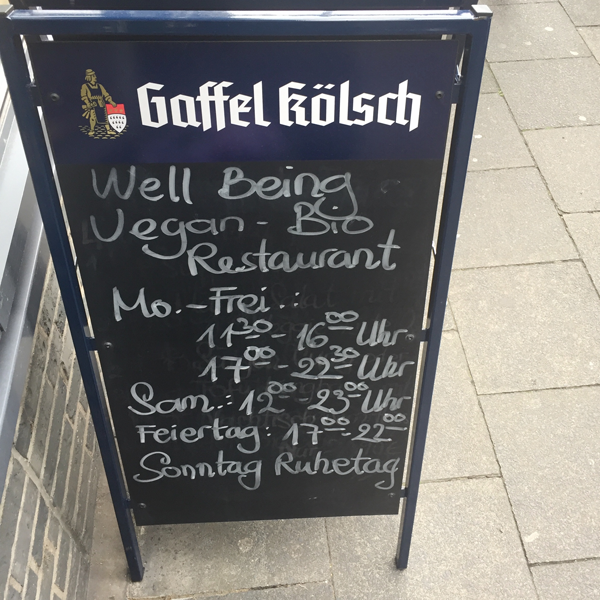 Gaffel Kölsch
Well Being
Vegan - Bio
Restaurant
Mo.-Frei.:
11³⁰ - 16⁰⁰ Uhr
17⁰⁰ - 22³⁰ Uhr
Sam.: 12⁰⁰ - 23⁰⁰ Uhr
Feiertag: 17⁰⁰ - 22⁰⁰
Sonntag Ruhetag